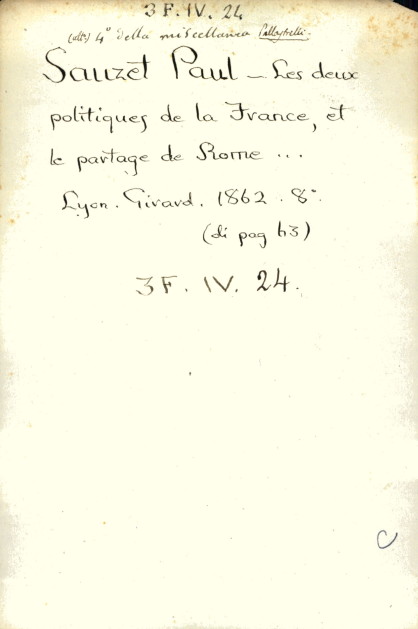 3 F. IV. 24
4° della miscellanea Pallastrelli.
Sauzet Paul – Les deux
politiques de la France, et
le partage de Rome ...
Lyon. Girard. 1862. 8°.
(di pag 63)
3 F. IV. 24.
C